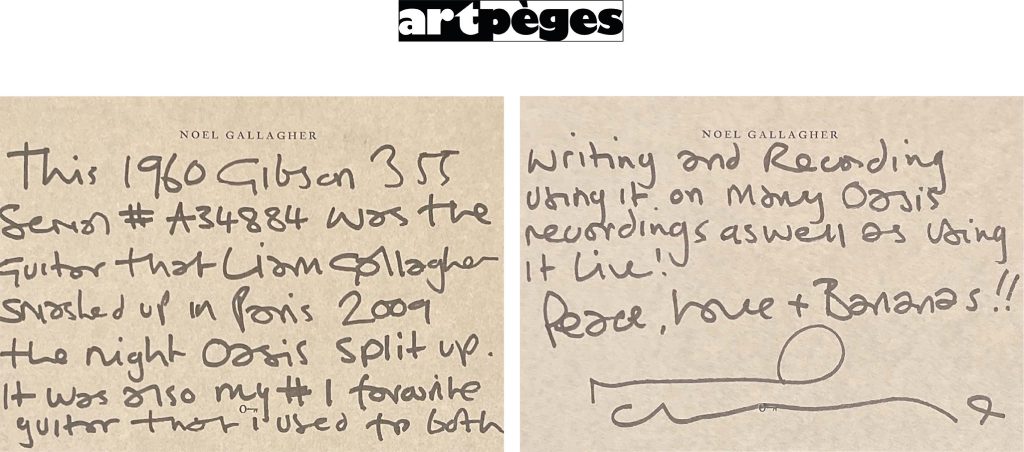 artpèges
NOEL GALLAGHER
This 1960 Gibson 355
Serial # A34884 was the
guitar that Liam Gallagher
smashed up in Paris 2009
the night Oasis split up.
It was also my # 1 favourite
guitar that i used to both
NOEL GALLAGHER
Writing and Recording
using it on Many Oasis
recordings aswell as using
it Live!
Peace, Love + Bananas!!